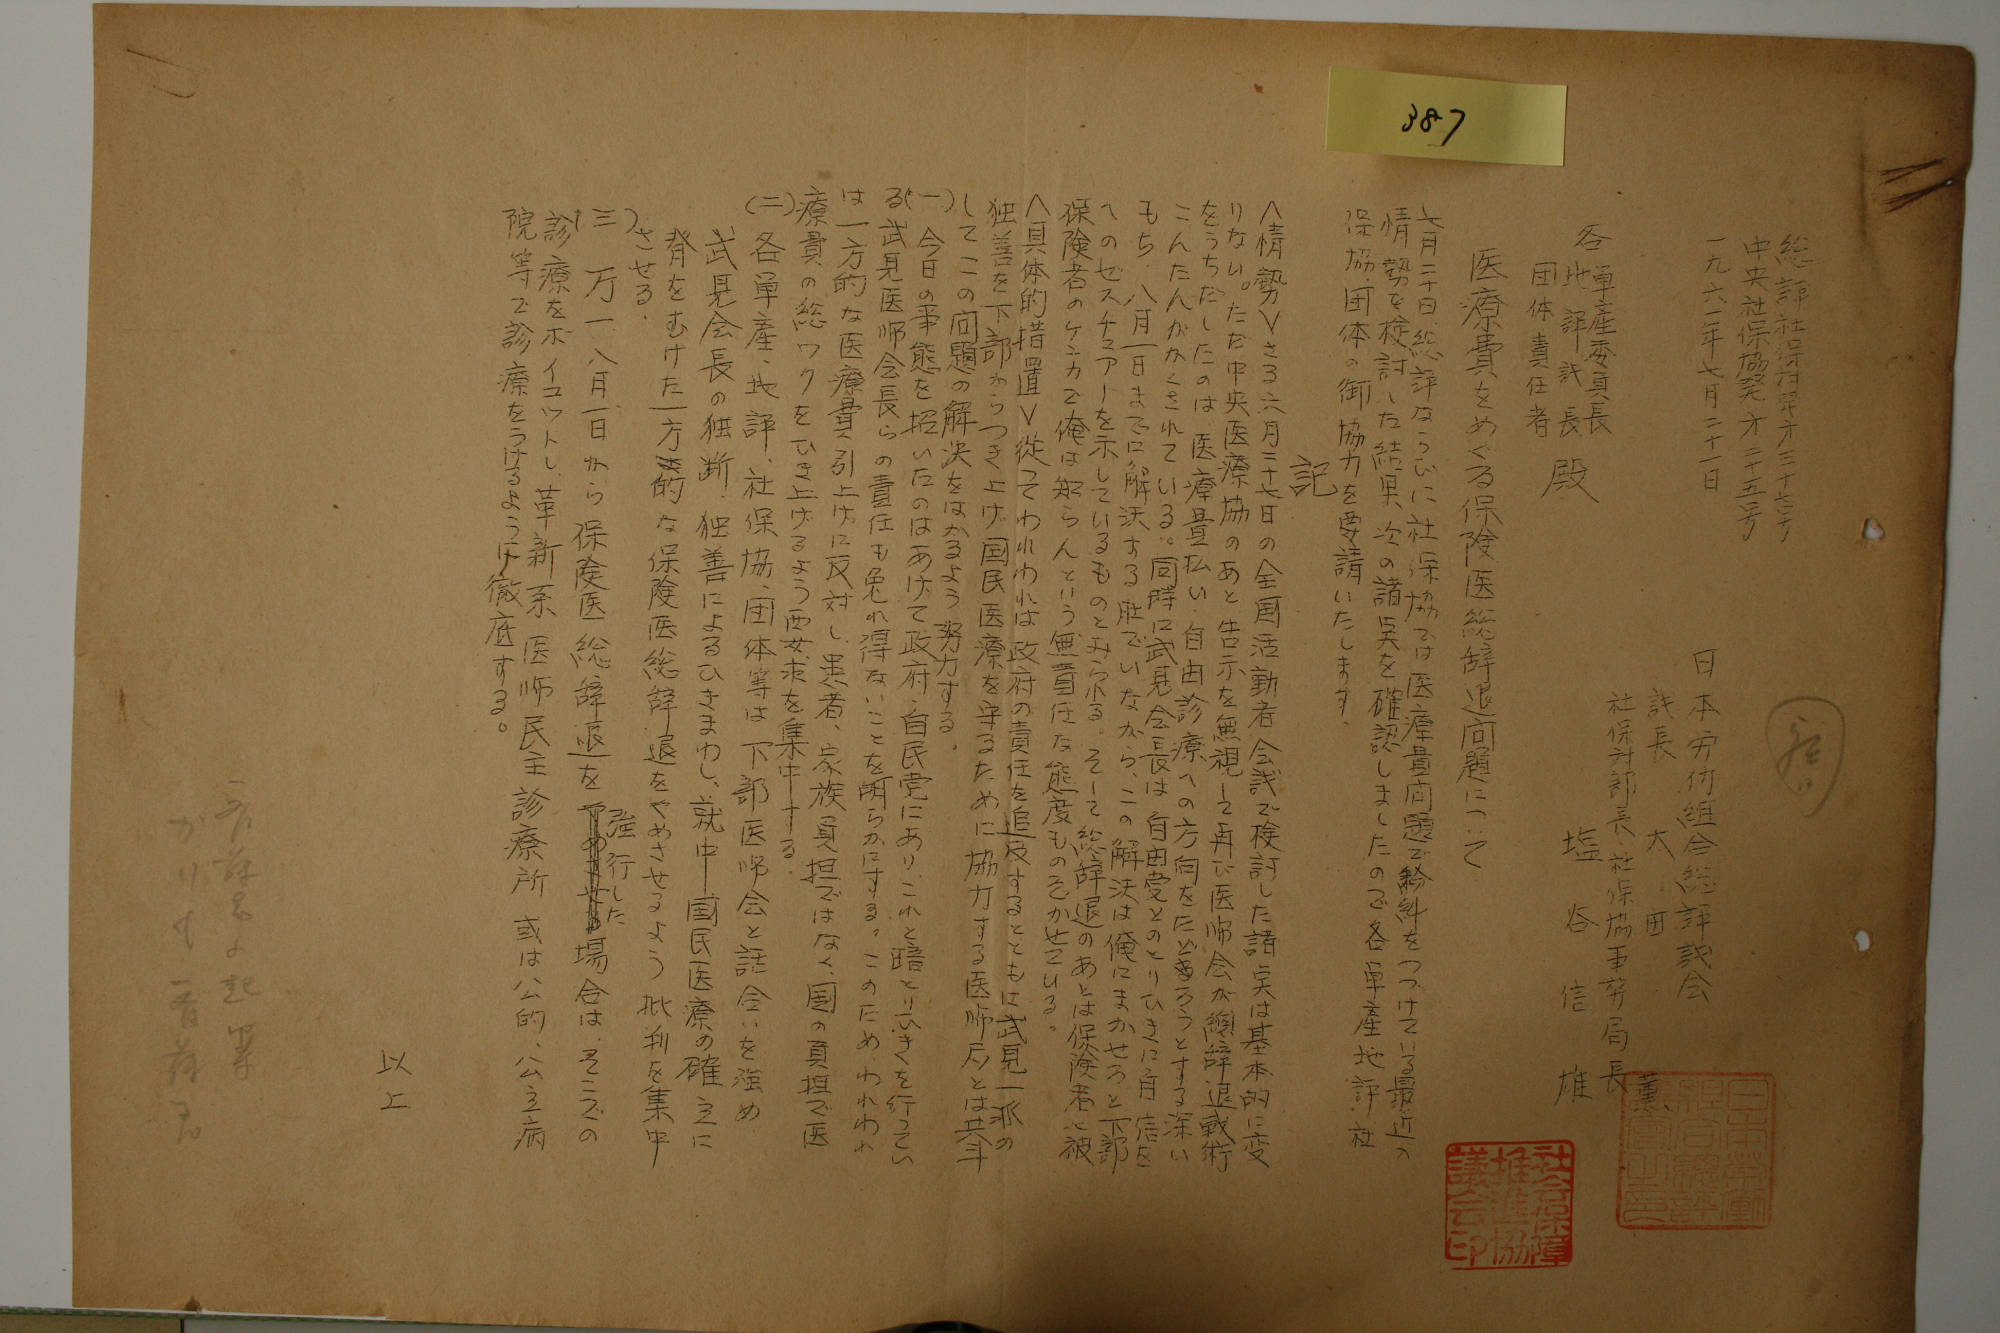 387
総評社保対発才三十七号
中央社保協発才二十五号
一九六一年七月二十一日
日本労仂組合総評議会
議長 大田 薫
社保対部長・社保協事務局長
塩谷信雄
日本労働組合総評議会之印
社会保障推進協議会印
各単産委員長
各地評議長 殿
団体責任者
医療費をめぐる保険医総辞退問題について
七月二十日、総評ならびに社保協では医療費問題で紛糾をつづけている最近の
情勢を検討した結果、次の諸点を確認しましたので各単産地評・社
保協団体の御協力を要請いたします。
記
〈情勢〉さる六月二十七日の全国活動者会議で検討した諸点は基本的に変
りない。ただ中央医療協のあと告示を無視して再び医師会が総辞退戦術
をうちだしたのは、医療費払い、自由診療への方向をたどろうとする深い
こんたんがかくされている。同時に武見会長は自由党とのとりひきに自信を
もち、八月一日までに解決する肚でいながら、この解決は俺にまかせろと下部
へのゼスチュアーを示しているものとみられる。そして総辞退のあとは保険者と被
保険者のケンカで俺は知らんという無責任な態度ものぞかせている。
〈具体的措置〉従ってわれわれは政府の責任を追及するとともに武見一派の
独善を下部からつき上げ国民医療を守るために協力する医師層とは共斗
してこの問題の解決をはかるよう努力する。
(一)今日の事態を招いたのはあげて政府・自民党にあり、これと暗とりひきを行ってい
る武見医師会長らの責任も免れ得ないことを明らかにする。このためわれわれ
は一方的な医療費引上げに反対し、患者、家族負担ではなく、国の負担で医
療費の総ワクをひき上げるよう要求を集中する。
(二)各単産・地評・社保協・団体等は下部医師会と話合いを強め
武見会長の独断、独善によるひきまわし、就中国民医療の確立に
背をむけた一方的な保険医総辞退をやめさせるよう批判を集中
させる.
(三)万一、八月一日から保険医総辞退を強行した場合は、そこでの
診療をボイコットし、革新系医師民主診療所或は公的、公立病
院等で診療をうけるよう徹底する。
以上